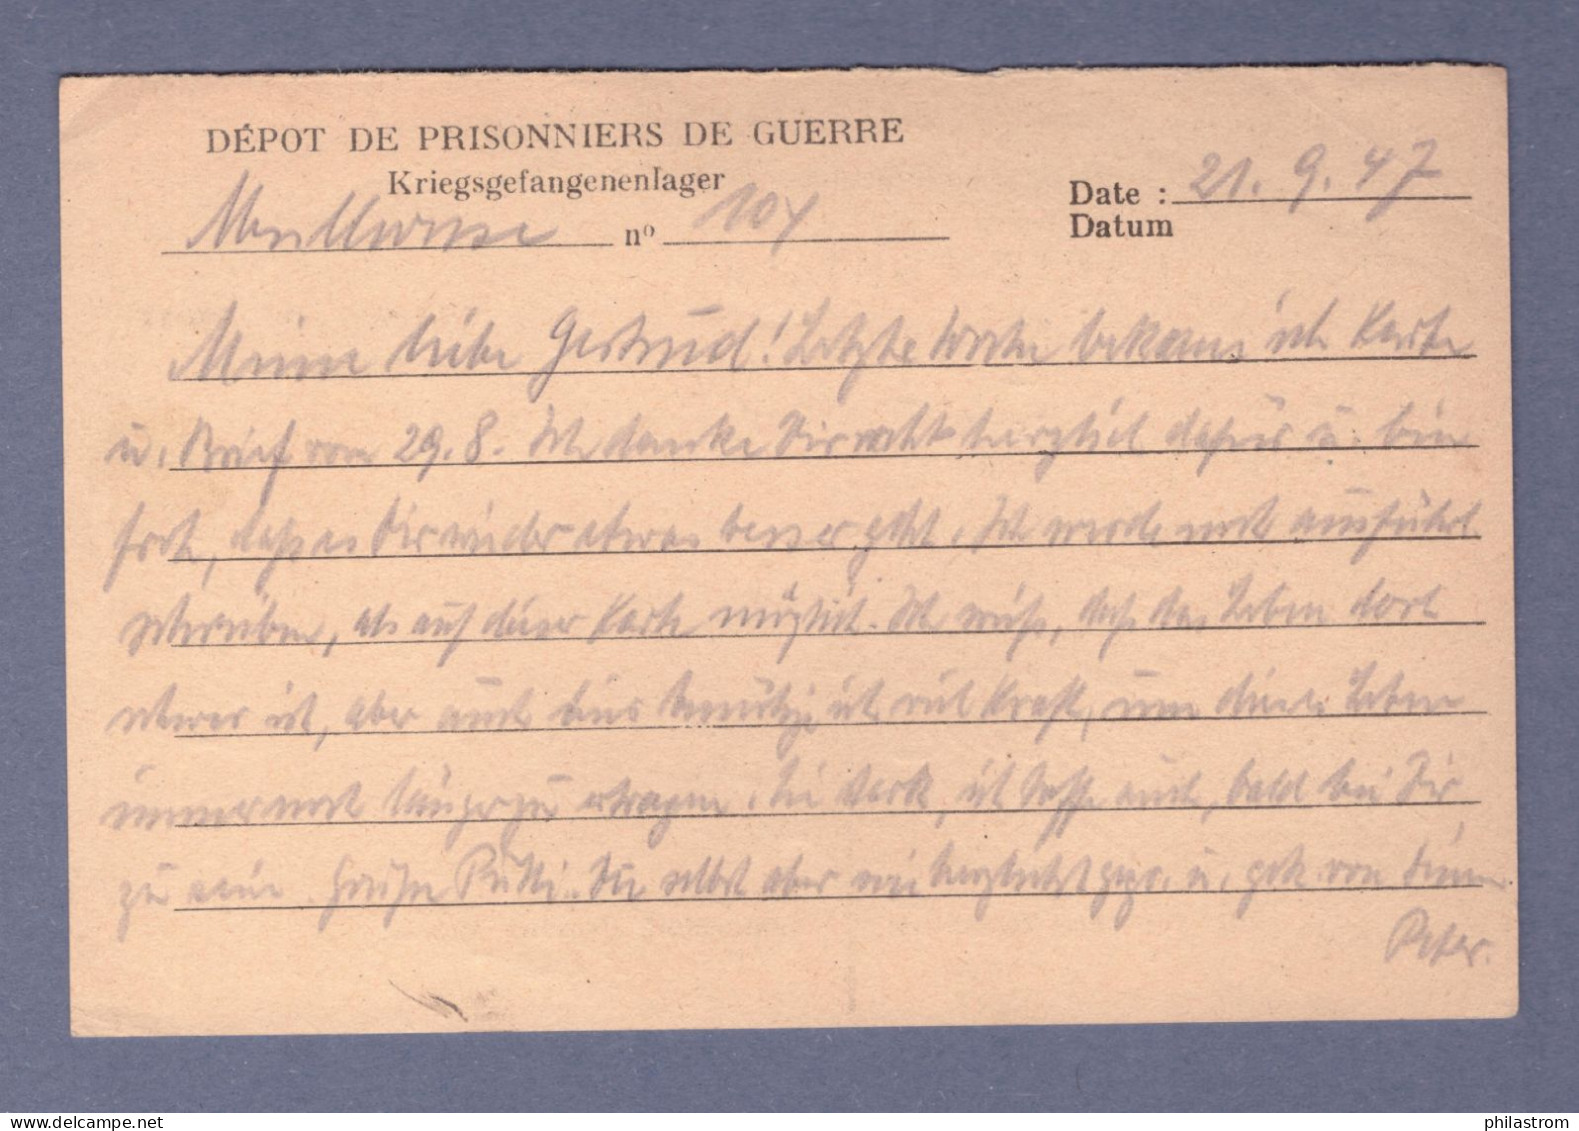 DÉPOT DE PRISONNIERS DE GUERRE
Kriegsgefangenenlager
Mullhouse nº 104
Date : 21. 9. 47
Datum
Meine liebe Gertrud! Letzte Woche bekam ich Karte
u. Brief vom 29. 8. Ich danke Dir recht herzlich dafür u. bin
froh, daß es Dir wieder etwas besser geht. Ich würde noch ausführl.
schreiben, als auf dieser Karte möglich. Ich weiß, daß das Leben dort
schwer ist, aber auch hier benötige ich viel Kraft, um dieses Leben
immer noch länger zu ertragen. Sei stark, ich hoffe auch, bald bei Dir
zu sein. Grüße Putti. Du selbst aber sei herzlichst gegr. u. gek. von Deinem
Peter.
philastrom
www.delcampe.net